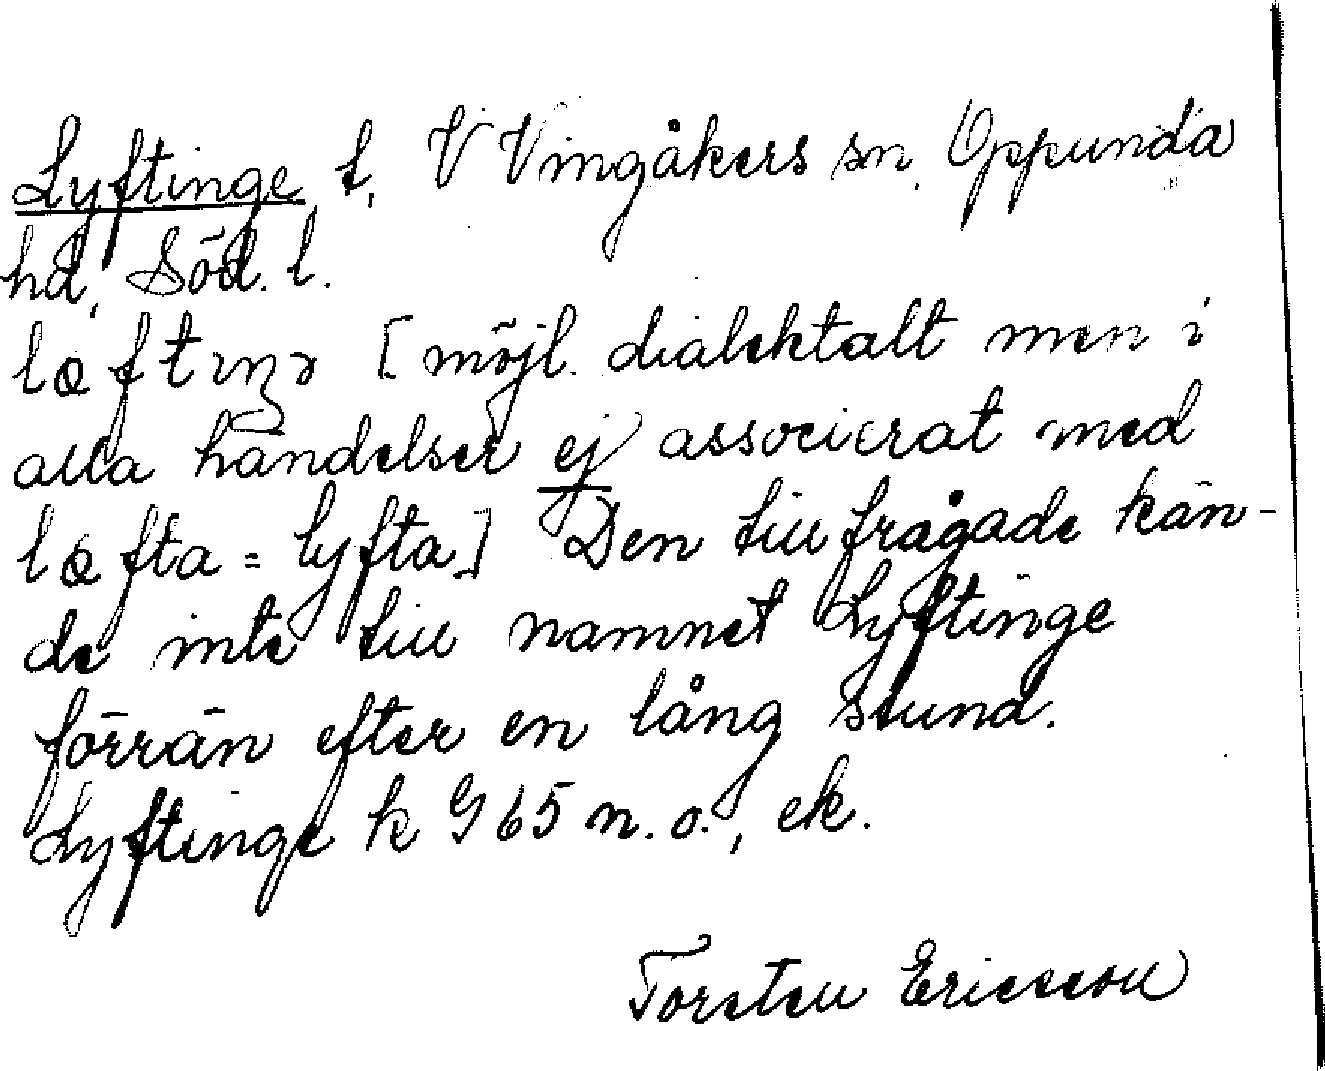 Lyftinge t, V Vingåkers sn, Oppunda
hd, Söd. l.
[möjl. dialektalt men i
alla händelser ej associerat med
fta = lyfta] Den tillfrågade kän-
de inte till namnet Lyftinge
förrän efter en lång stund.
Lyftinge k 965 n.o., ek.
Torsten Ericsson